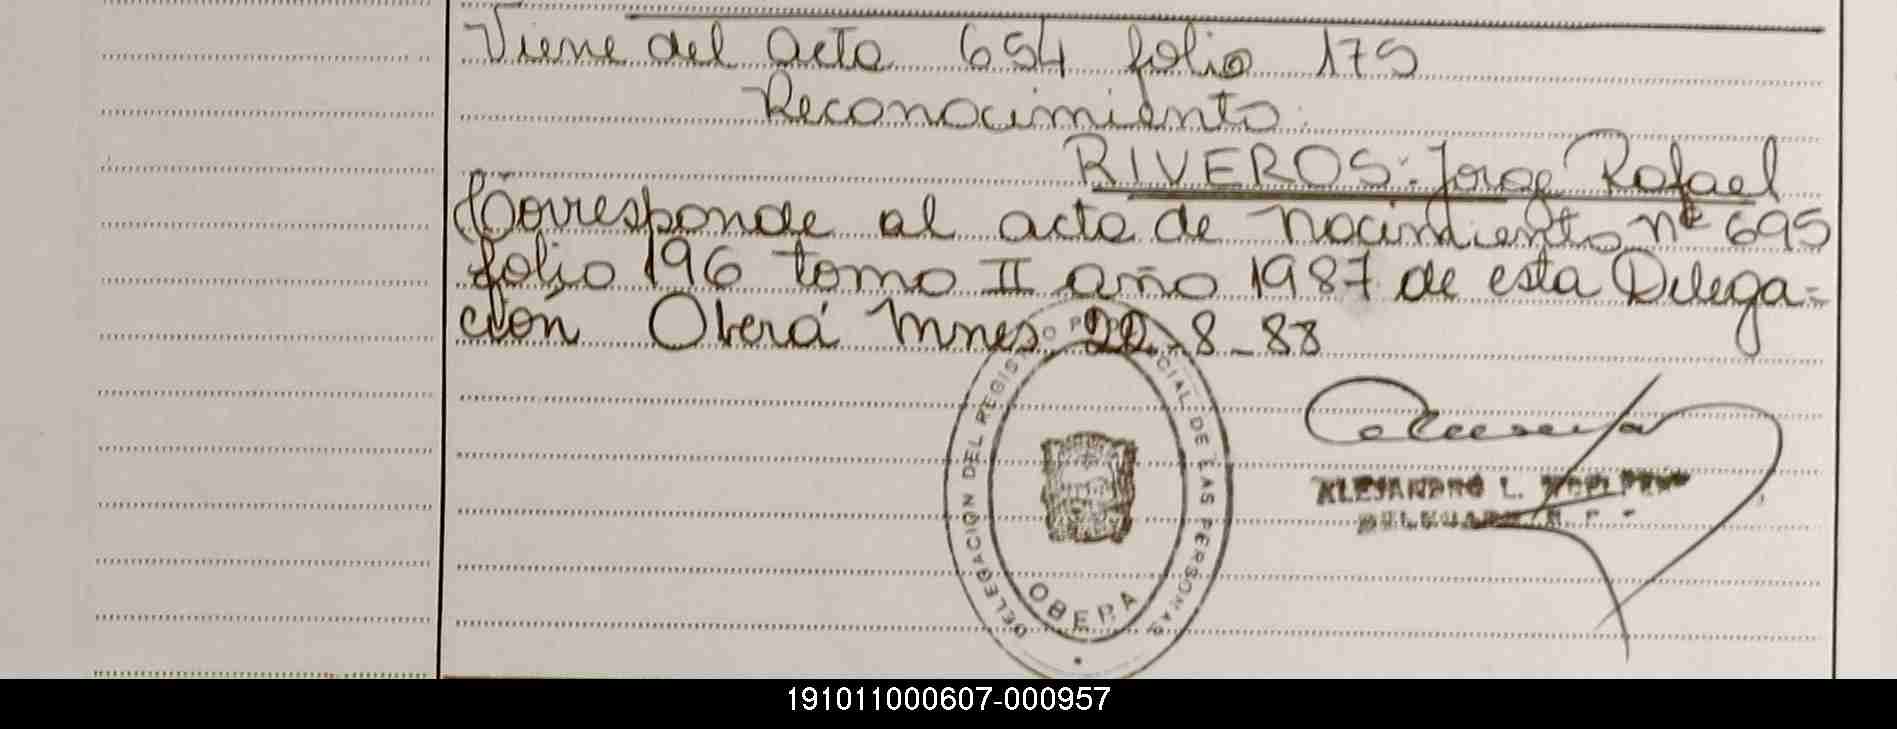 Viene del acta 654 folio 175
Reconocimiento.
RIVEROS: Jorge Rafael
Corresponde al acta de nacimiento nº 695
folio 196 tomo II año 1987 de esta Delega=
ción Oberá Mnes. 22-8-88
DELEGACION DEL REGISTRO PROVINCIAL DE LAS PERSONAS
OBERA
ALEJANDRO L.
191011000607-000957